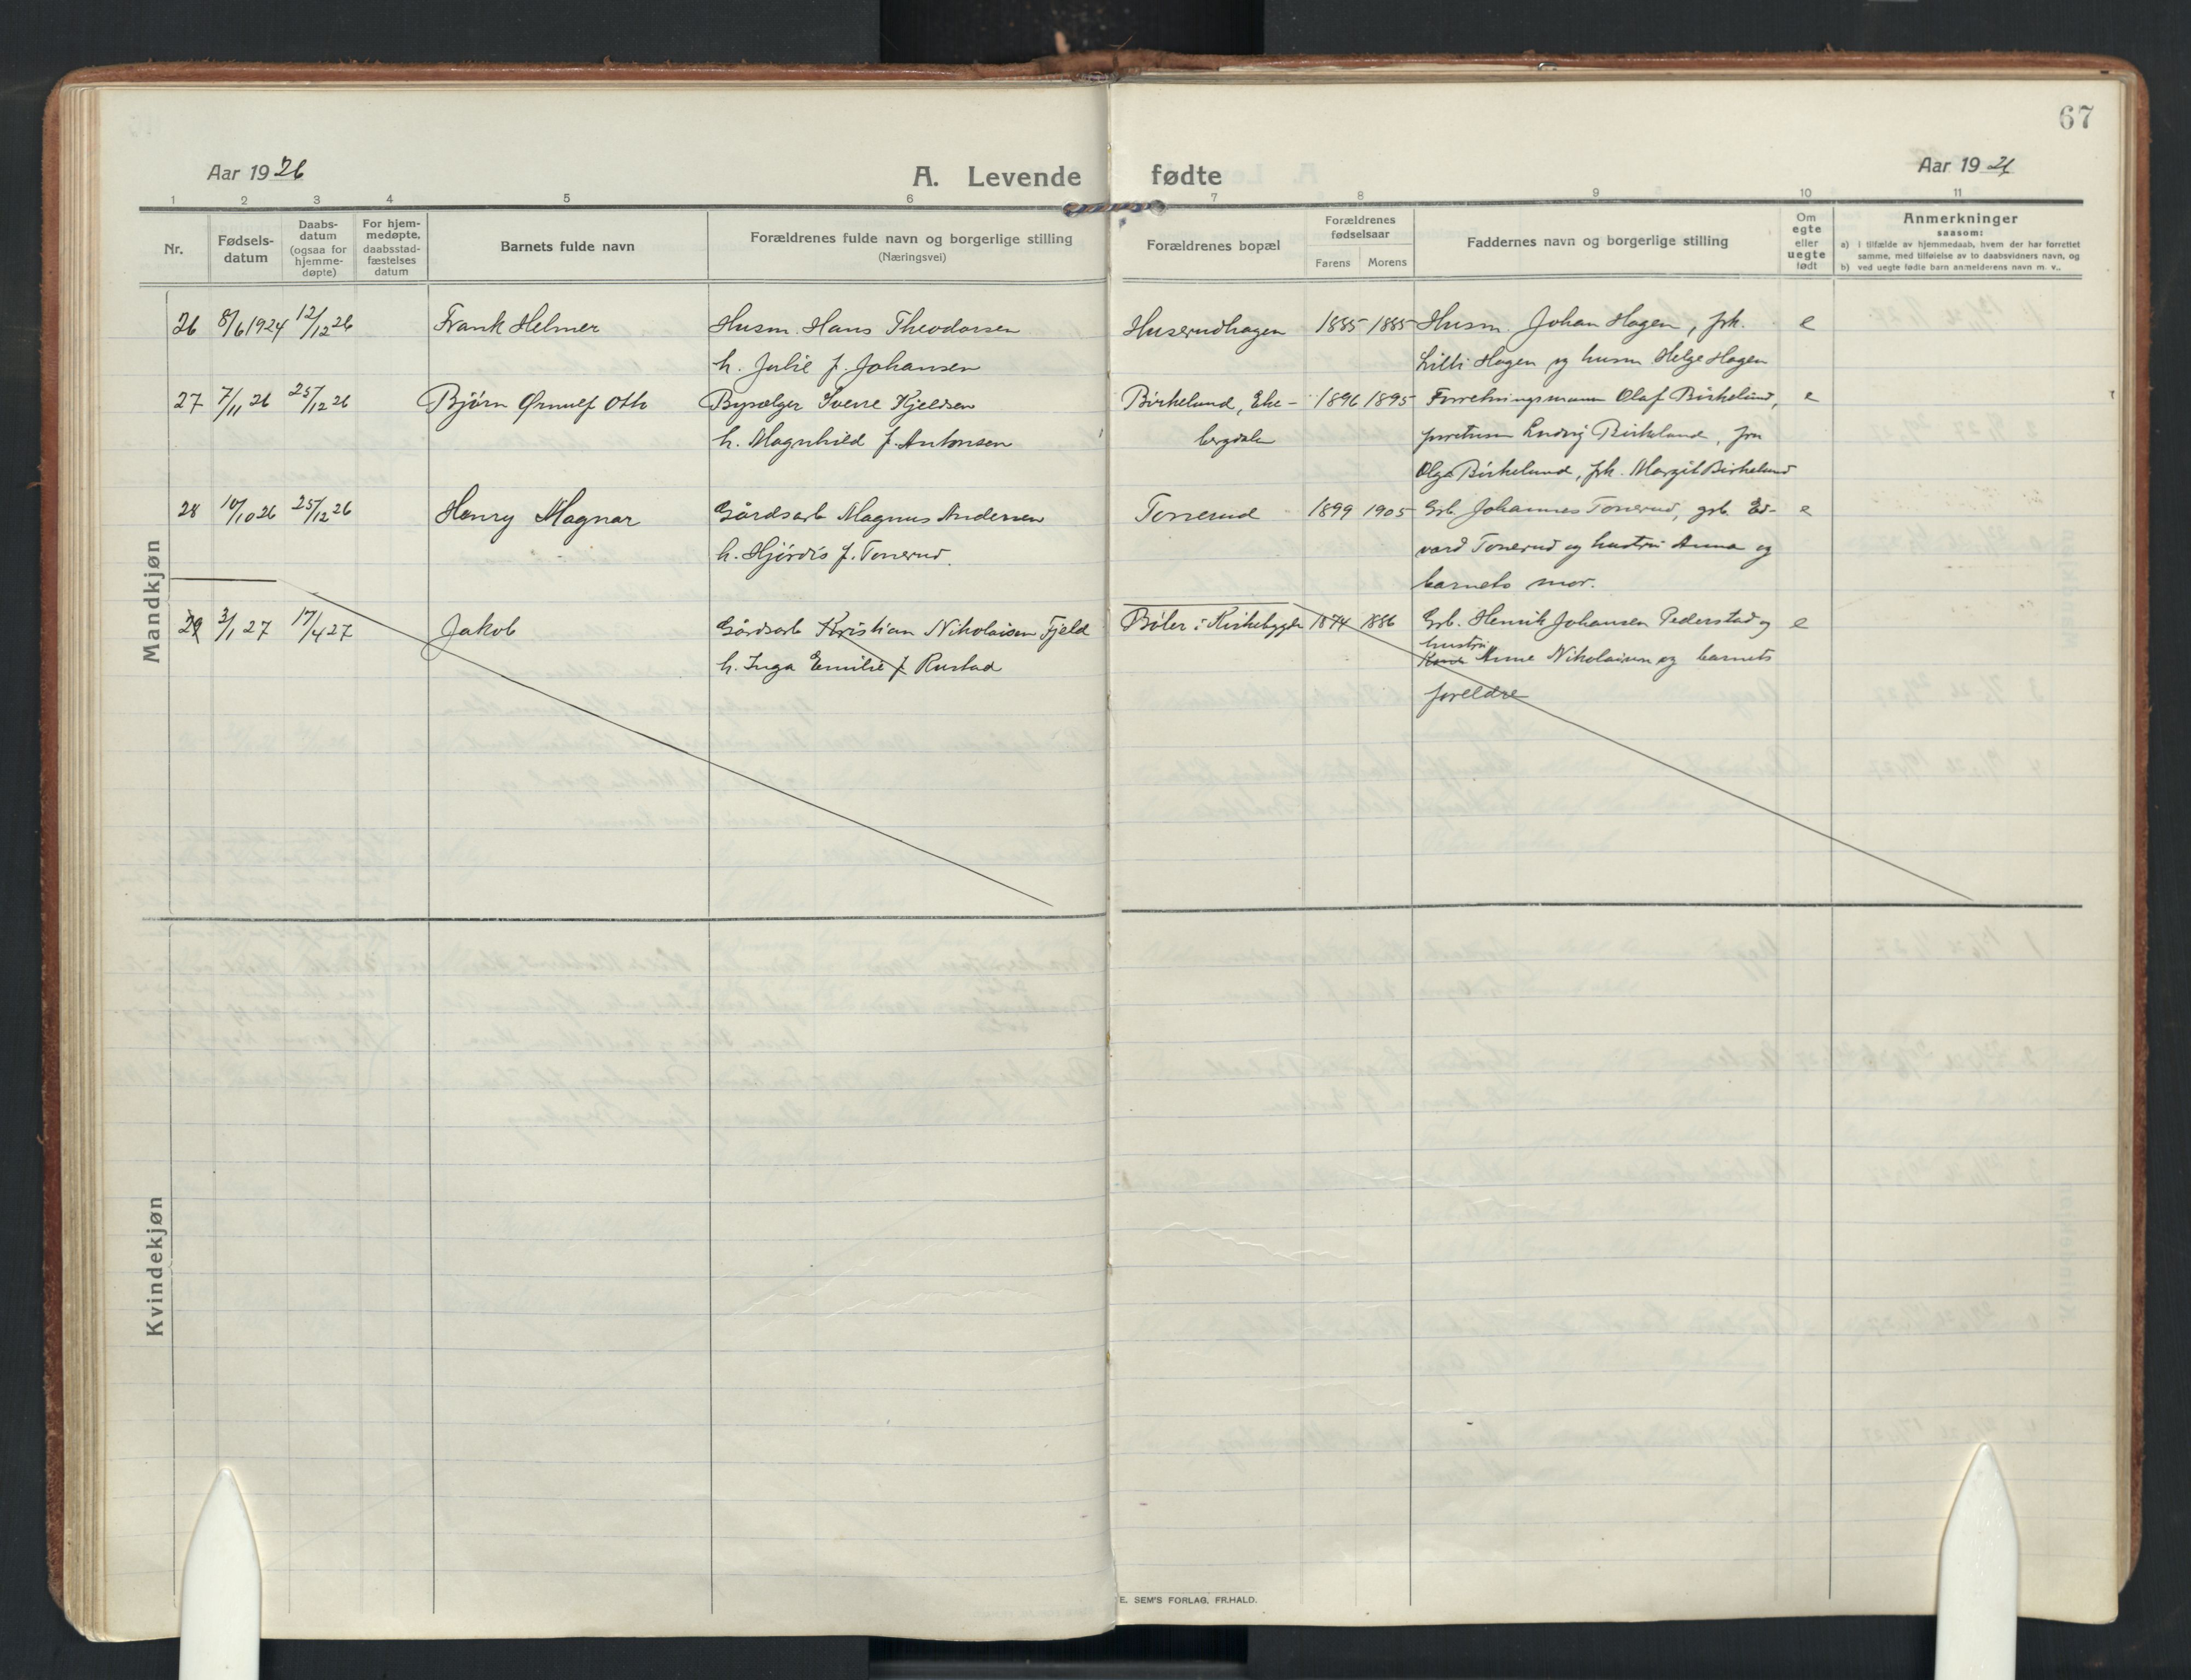 67
Aar 1926
A. Levende fødte
Aar 1926
1 2 3 4 5 6 7 8 9 10 11
Nr.
Fødsels-
datum
Daabs-
datum
(ogsaa for
hjemme-
døpte)
For hjem-
medøpte,
daabsstad-
fæstelses
datum
Barnets fulde navn
Forældrenes fulde navn og borgerlige stilling
(Næringsvei)
Forældrenes bopæl
Forældrenes
fødselsaar
Farens Morens
Faddernes navn og borgerlige stilling
Om
egte
eller
uegte
født
Anmerkninger
saasom:
a) i tilfælde av hjemmedaab, hvem der har forrettet
samme, med tilføielse av to daabsvidners navn, og
b) ved uegte fødte barn anmelderens navn m. v..
Mandkjøn
26 8/6 1924 12/12 26 Frank Helmer Husm. Hans Theodorsen Huserudhagen 1885 1885 Husm. Johan Hagen, frk. e
h. Julie f. Johansen Lilli Hagen og husm Helge Hagen
27 7/11 26 25/12 26 Bjørn Ørnulf Oth Sverre Kjeldsen Birkelund, Eke- 1896 1895 Forretningsmann Olaf Birkelund, e
h. Magnhild f. Antonsen bergdalen Ludvig Birkelund, fru
Olga Birkelund, frk. Margit Birkelund
28 10/10 26 25/12 26 Henry Magnar Gårdsarb Magnus Andersen Tonerud 1899 1905 Grb. Johannes Tonerud, grb. Ed- e
h. Hjørdis f. Tonerud. vard Tonerud og hustru Anna og
barnets mor.
29 3/1 27 17/4 27 Jakob Gårdsarb Kristian Nikolaisen Fjeld Bøler i Kirkebygden 1874 1886 Grb. Henrik Johansen Pederstad og e
hustru
h. Inga Emilie f. Rustad Anne Nikolaisen og barnets
foreldre
Kvindekjøn
E. SEM'S FORLAG, FR.HALD.